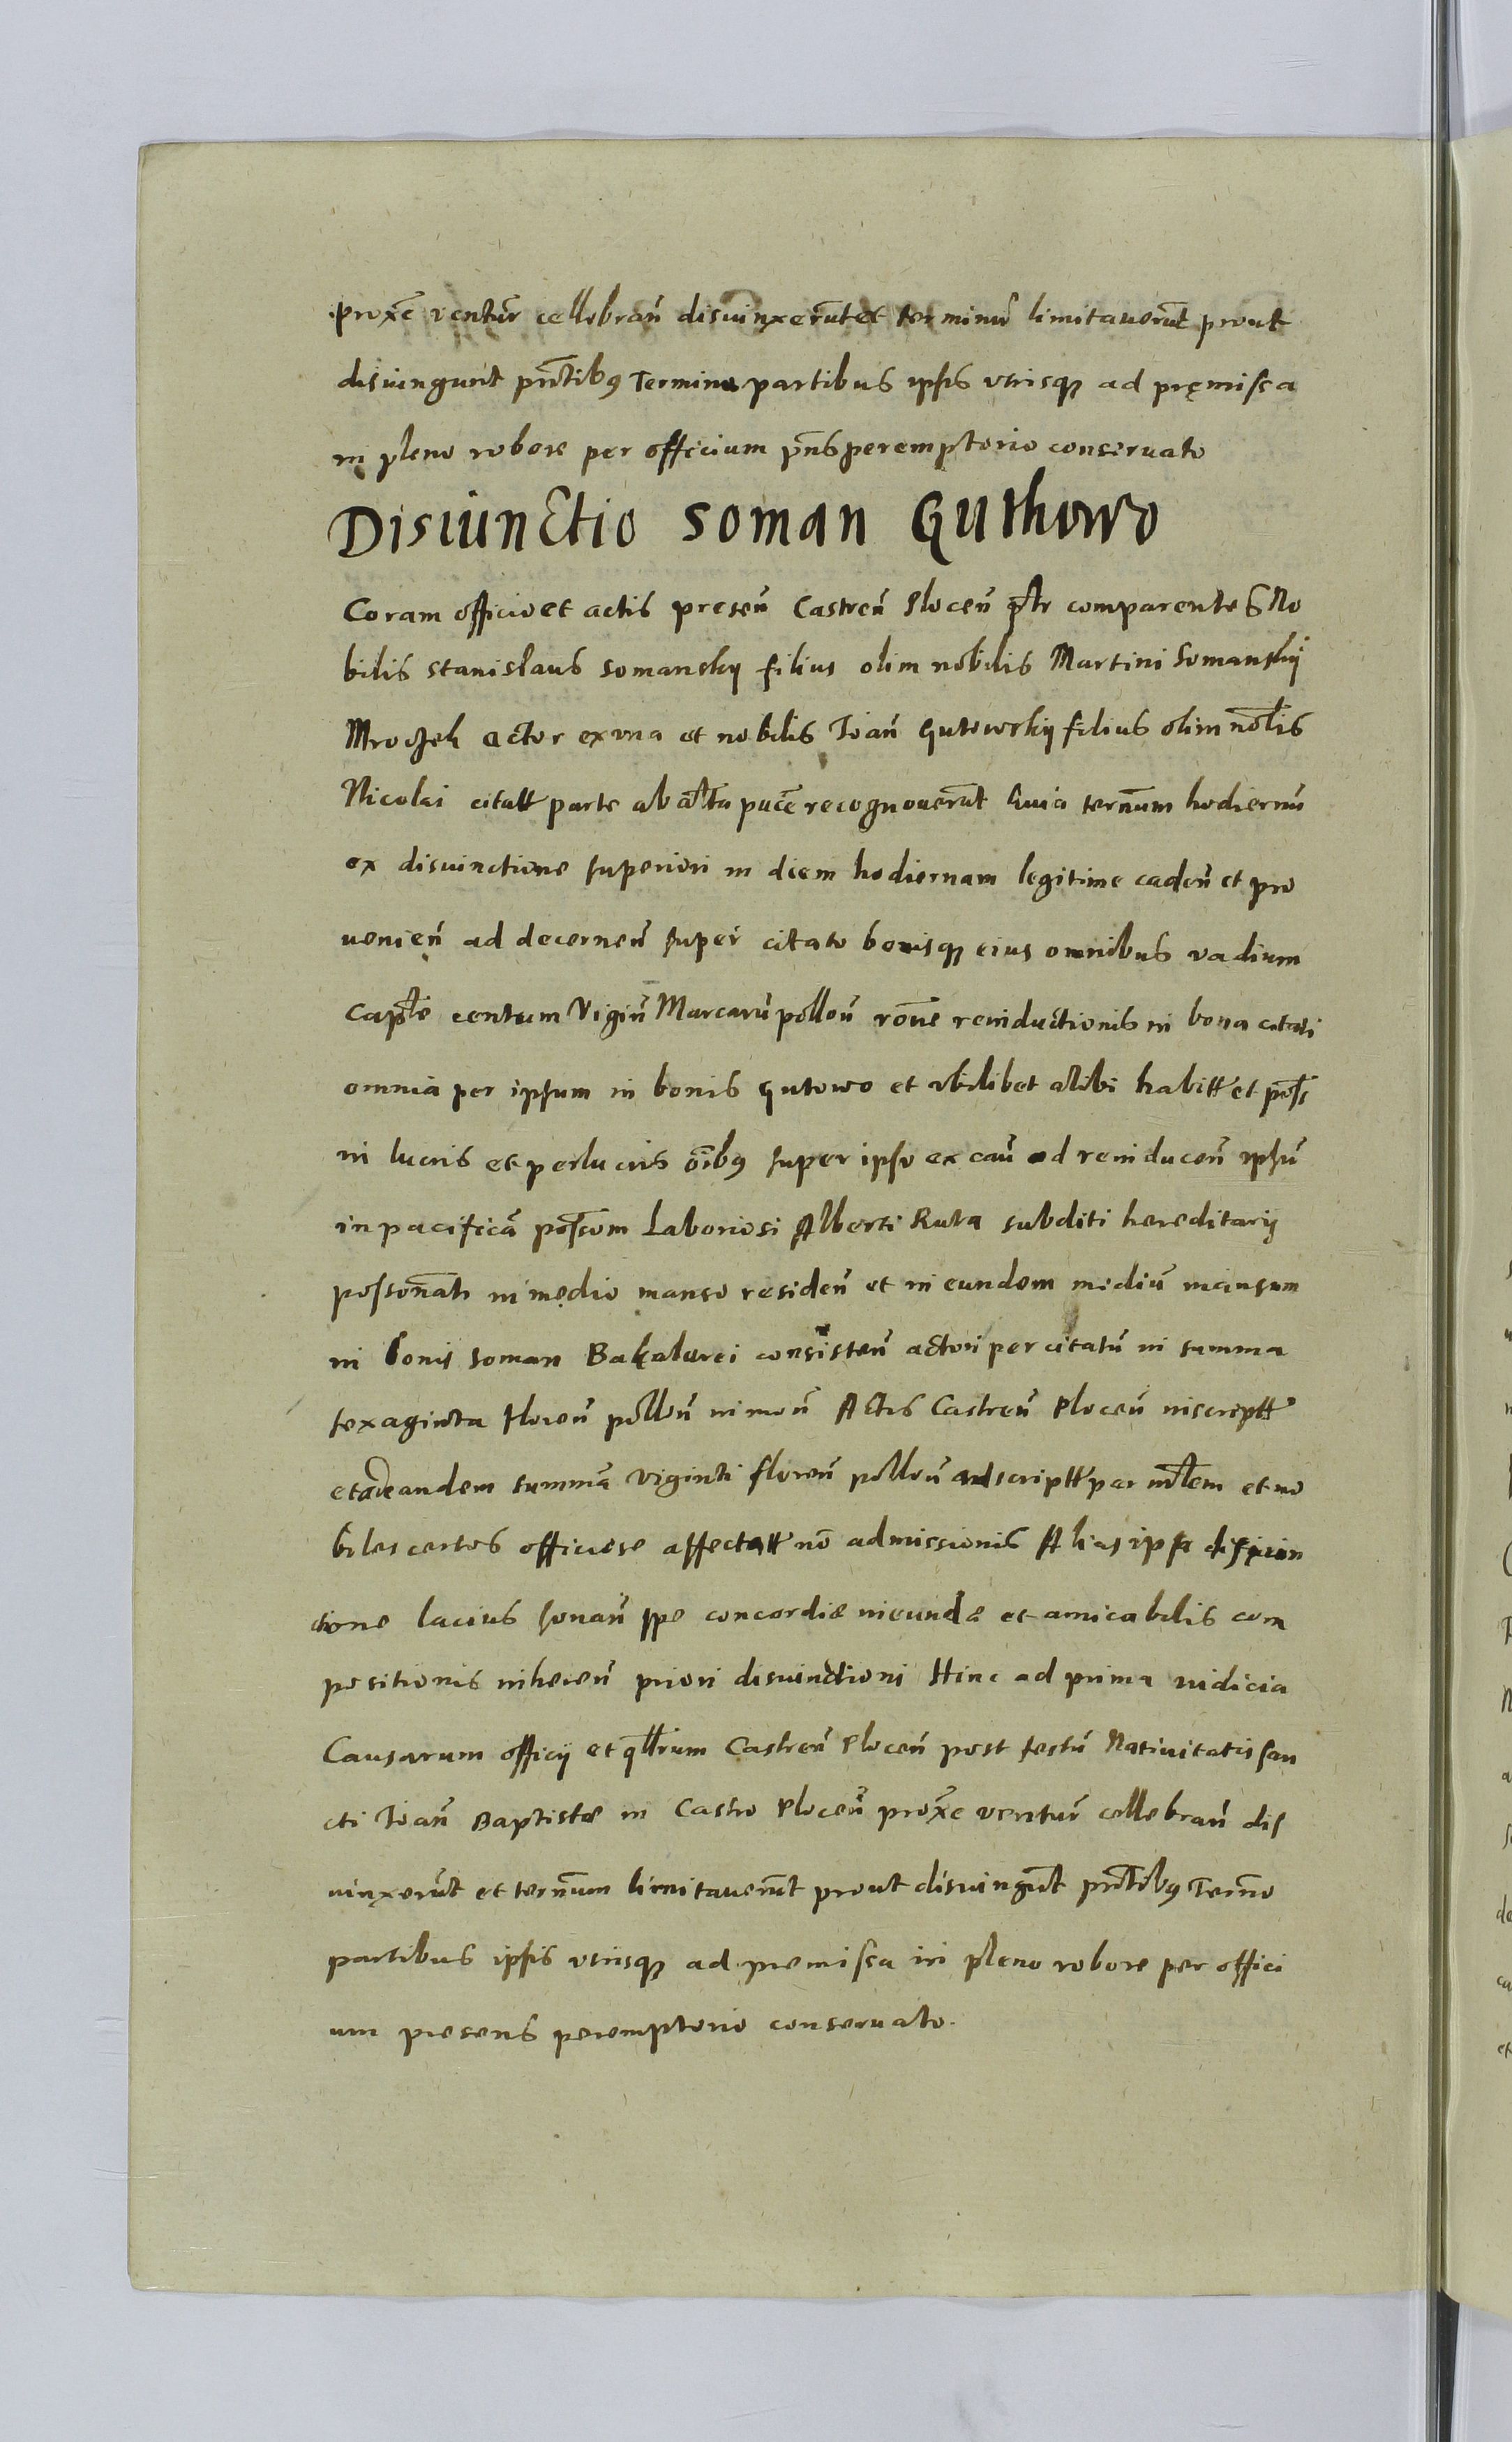 proxe͂ ventur͂ cellebran͂ disiunxeru͂t et terminu͂ limitaueru͂t prout
disiungunt pn͂tibꝯ Termino partibus ipsis vtrisqꝫ ad pręmissa
in pleno robore per officium pn͂s peremptorio conseruato
Disiunctio Soman Guthowo
Coram officio et actis presen͂ Castren͂ Plocen͂ pl͂r comparentes No
bilis Stanislaus Somansky filius olim nobilis Martini Somanskij
Mroczek actor ex vna et nobilis Joan͂ Gutowskij filius olim nob͂lis
Nicolai citatt parte ab alt͂a puce͂ recognouerunt Quia ter͂num hodiernu͂
ex disiunctione superiori in diem hodiernam legitime caden͂ et pro
uenien͂ ad decernen͂ super citato bonisqꝫ eius omnibus vadium
centum Vigin͂ Marcaru͂ pollon͂ ro͂ne reinductionis in bona citati
omnia per ipsum in bonis Gutowo et vbilibet alibi habitt et poss͂
in lucris et perlucris o͂ibꝯ super ipso ex cau͂ ad reinducen͂ ipsu͂
in pacifica͂ poss͂om Laboriosi Alberti Ruta subditi hereditarij
possona͂ti in medio manso residen͂ et in eundem mediu͂ mansum
in bonis Soman Bakalarei consisten͂ actori per citatu͂ in summa
sexaginta floren͂ pollon͂ in mon͂ Actis Castren͂ Plocen͂ inscriptt
et ad eandem summa͂ viginti floren͂ pollon͂ adscriptt per m͂lem et no
biles certos officiose affectatt no͂ admissionis Alias ipsa disiun
ctione lacius sonan͂ spe concordiæ ineundæ et amicabilis com
positionis inheren͂ priori disiunctioni Hinc ad prima iudicia
Causarum officij et q͂ll͂rium Castren͂ Plocen͂ post festu͂ Natiuitatis san
cti Joan͂ Baptistæ in Castro Plocen͂ prox͂e ventur͂ cellebran͂ dis
iunxeru͂t et ter͂num limitauerunt prout disiungu͂t pn͂tibꝯ Ter͂no
partibus ipsis vtrisqꝫ ad premissa in pleno robore per offici
um presens peremptorio conseruato.